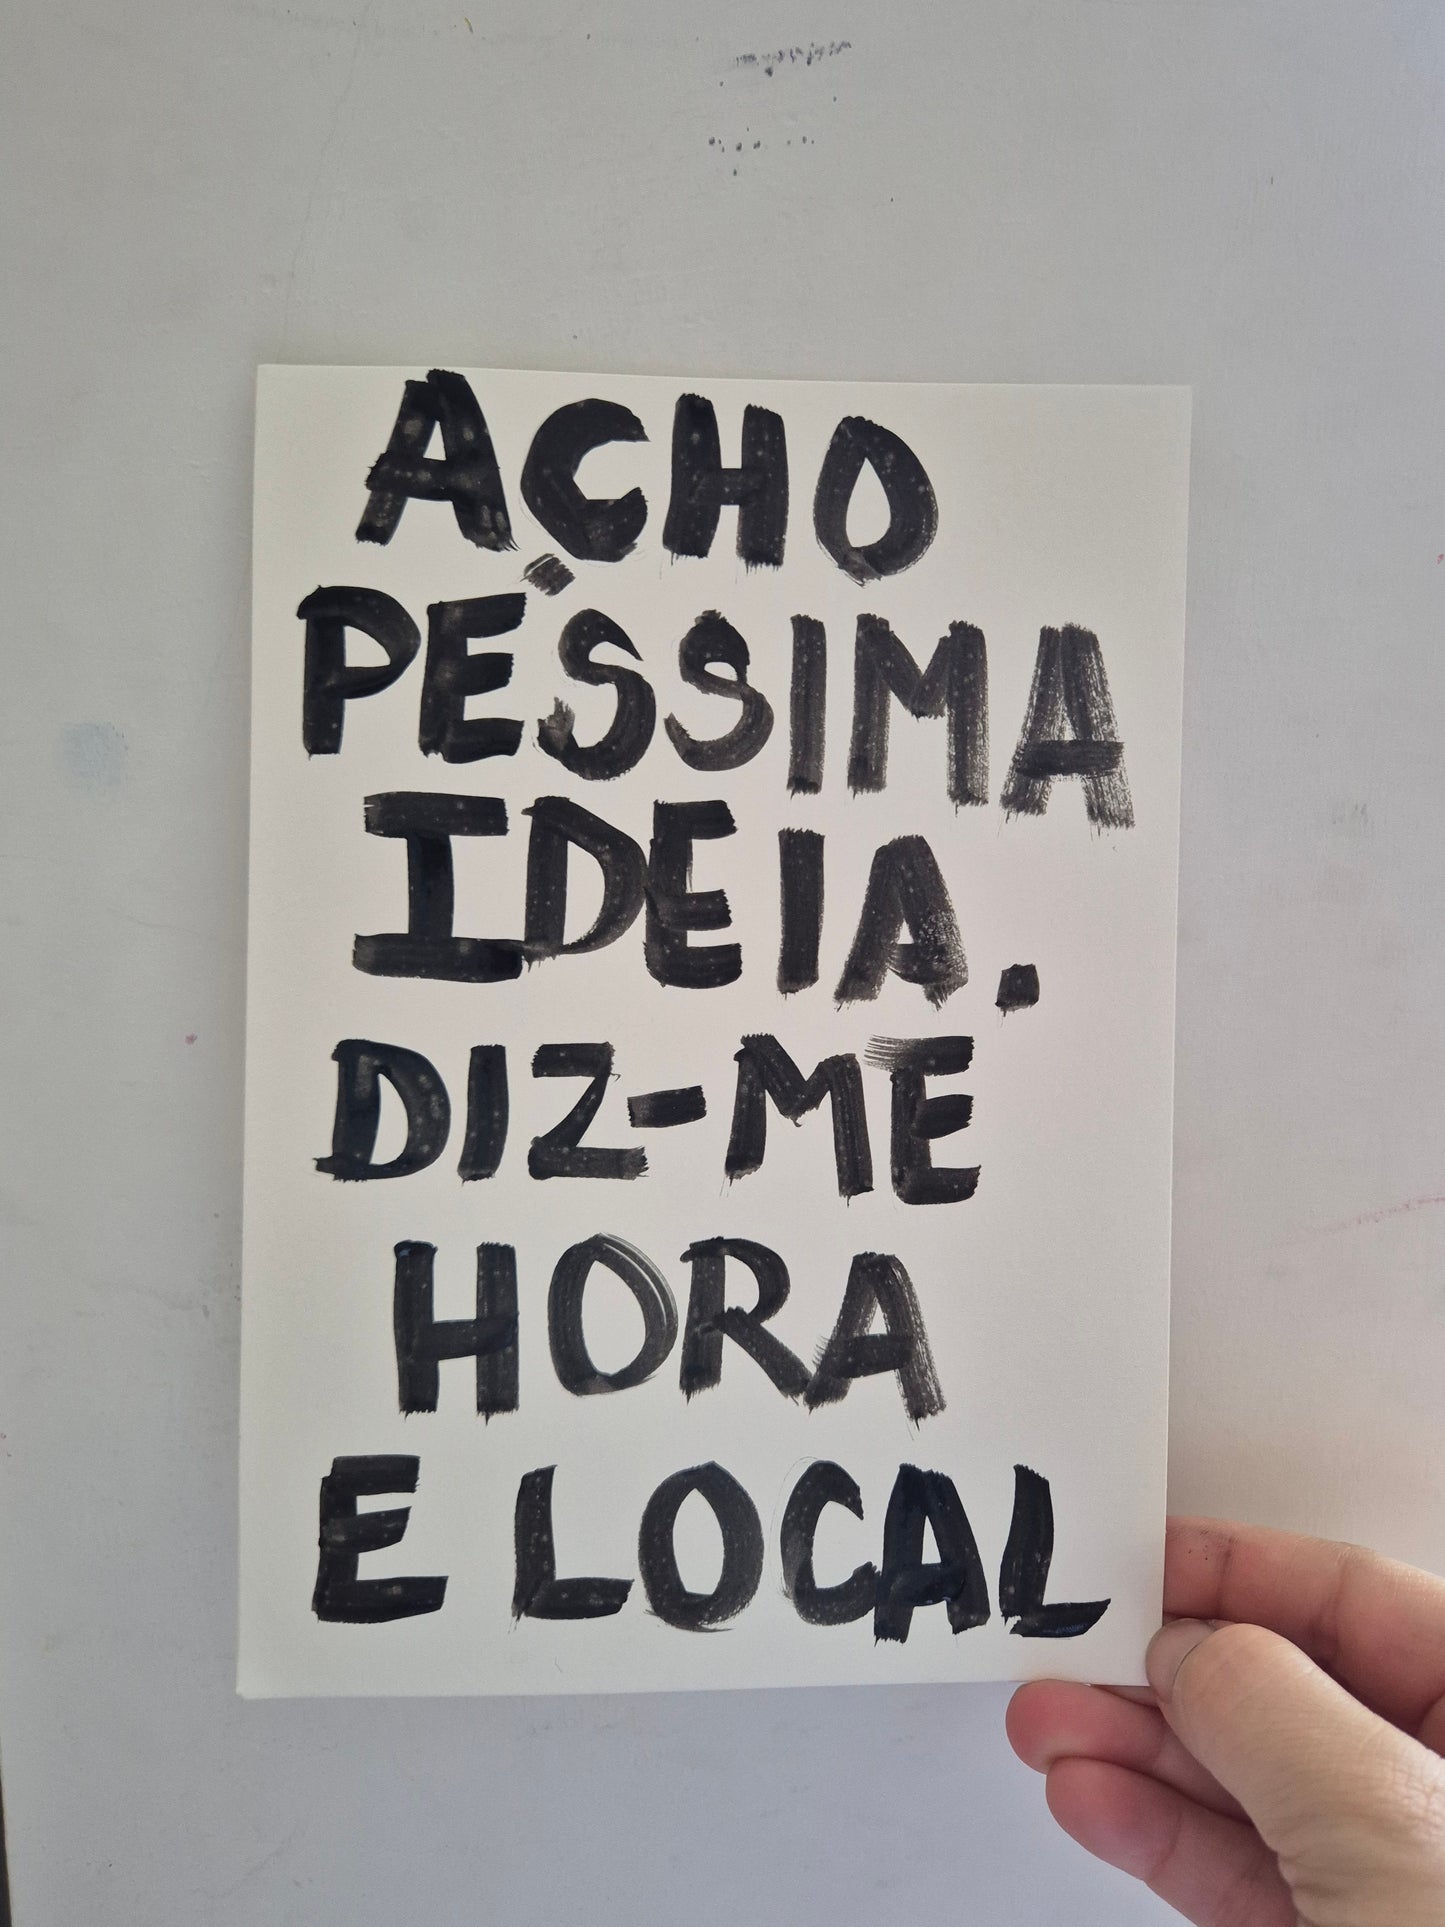 ACHO
PÉSSIMA
IDEIA.
DIZ-ME
HORA
E LOCAL